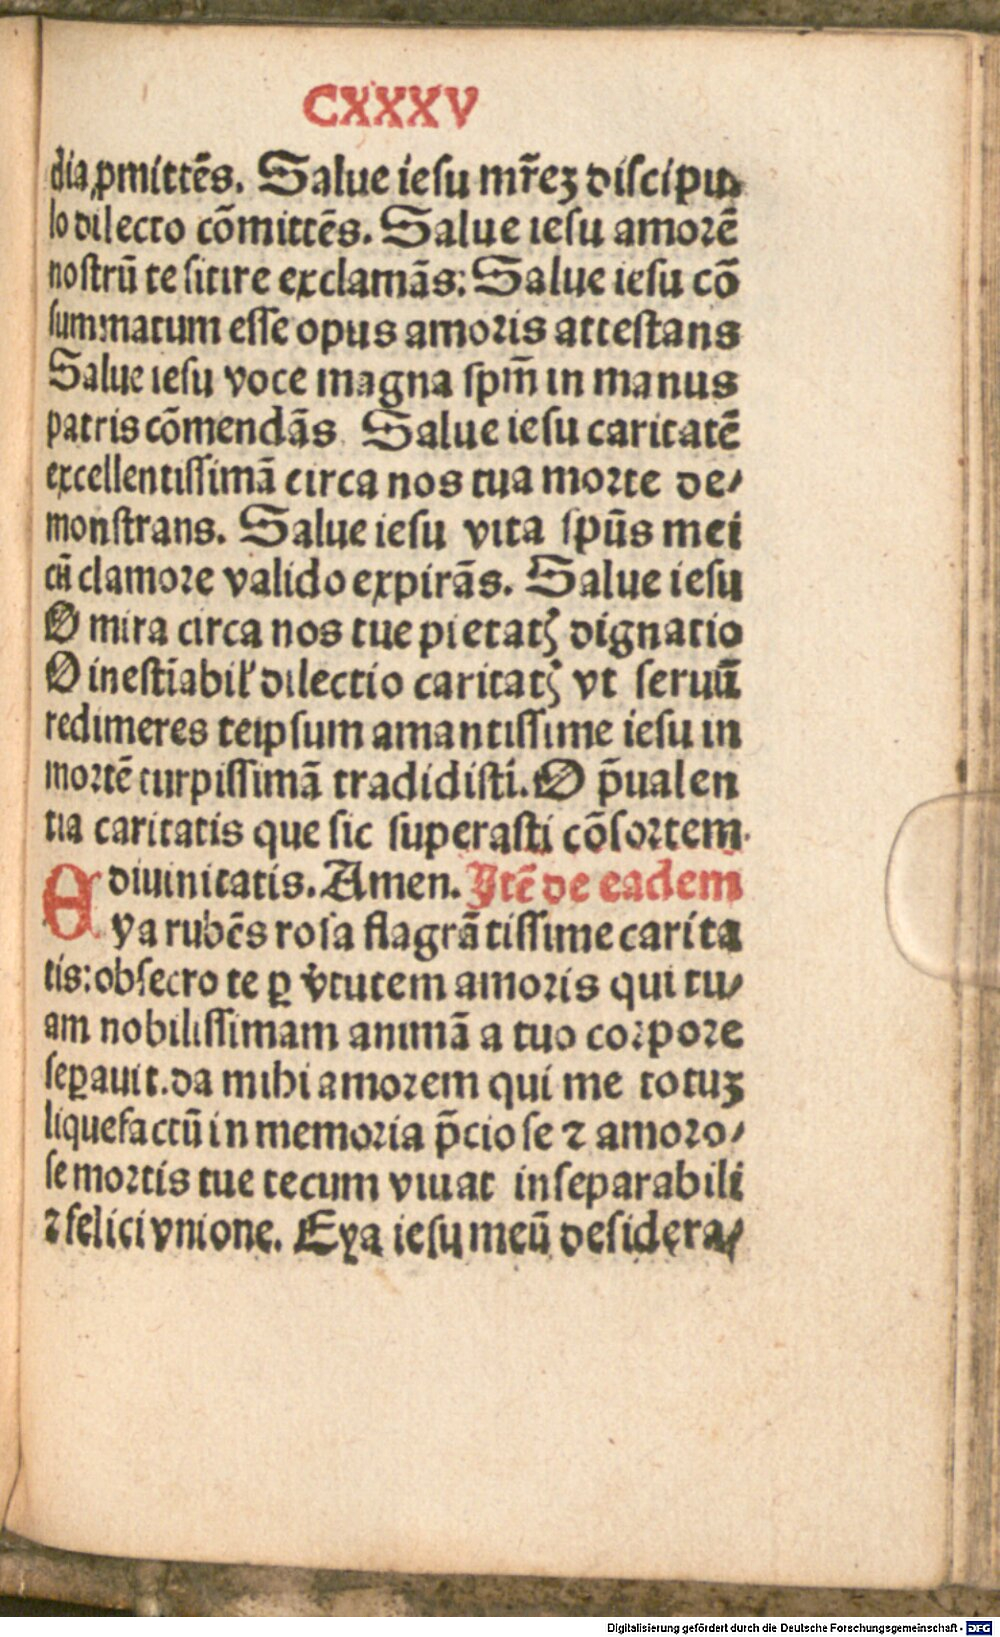 CXXXV
dia ꝓmittēs. Salue iesu mr̄eꝫ discipu-
lo dilecto cōmittēs. Salue iesu amorē
nostrū te sitire exclamās: Salue iesu cō
summatum esse opus amoris attestans
Salue iesu voce magna spm̄ in manus
patris cōmendās. Salue iesu caritatē
excellentissimā circa nos tua morte de-
monstrans. Salue iesu vita spūs mei
cū clamore valido expirās. Salue iesu
O mira circa nos tue pietatꝭ dignatio
O inestiābil' dilectio caritatꝭ vt seruū
redimeres teipsum amantissime iesu in
mortē turpissimā tradidisti. O p̄ualen
tia caritatis que sic superasti cōsortem
diuinitatis. Amen. Itē de eadem
Eya rubēs rosa flagrātissime carita
tis: obsecro te ꝑ v̄tutem amoris qui tu-
am nobilissimam animā a tuo corpore
seꝑauit. da mihi amorem qui me totuꝫ
liquefactū in memoria p̄ciose ⁊ amoro-
se mortis tue tecum viuat inseparabili
⁊ felici vnione. Eya iesu meū desidera-
Digitalisierung gefördert durch die Deutsche Forschungsgemeinschaft - DFG